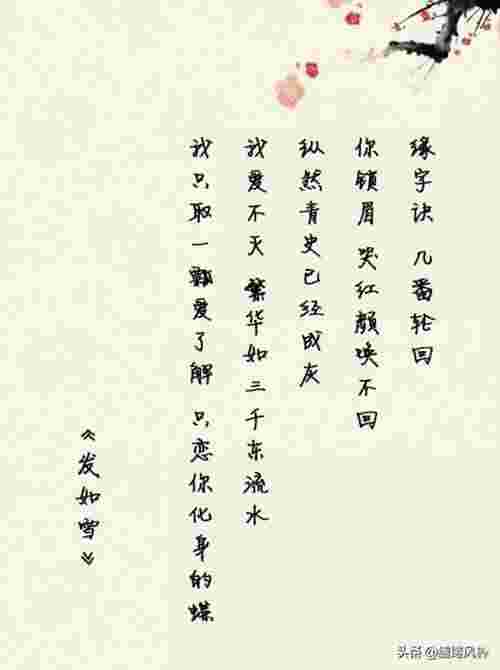 缘字诀 几番轮回
你锁眉 哭红颜唤不回
纵然青史已经成灰
我爱不灭 繁华如三千东流水
我只取一瓢爱了解 只恋你化身的蝶
《发如雪》
头条